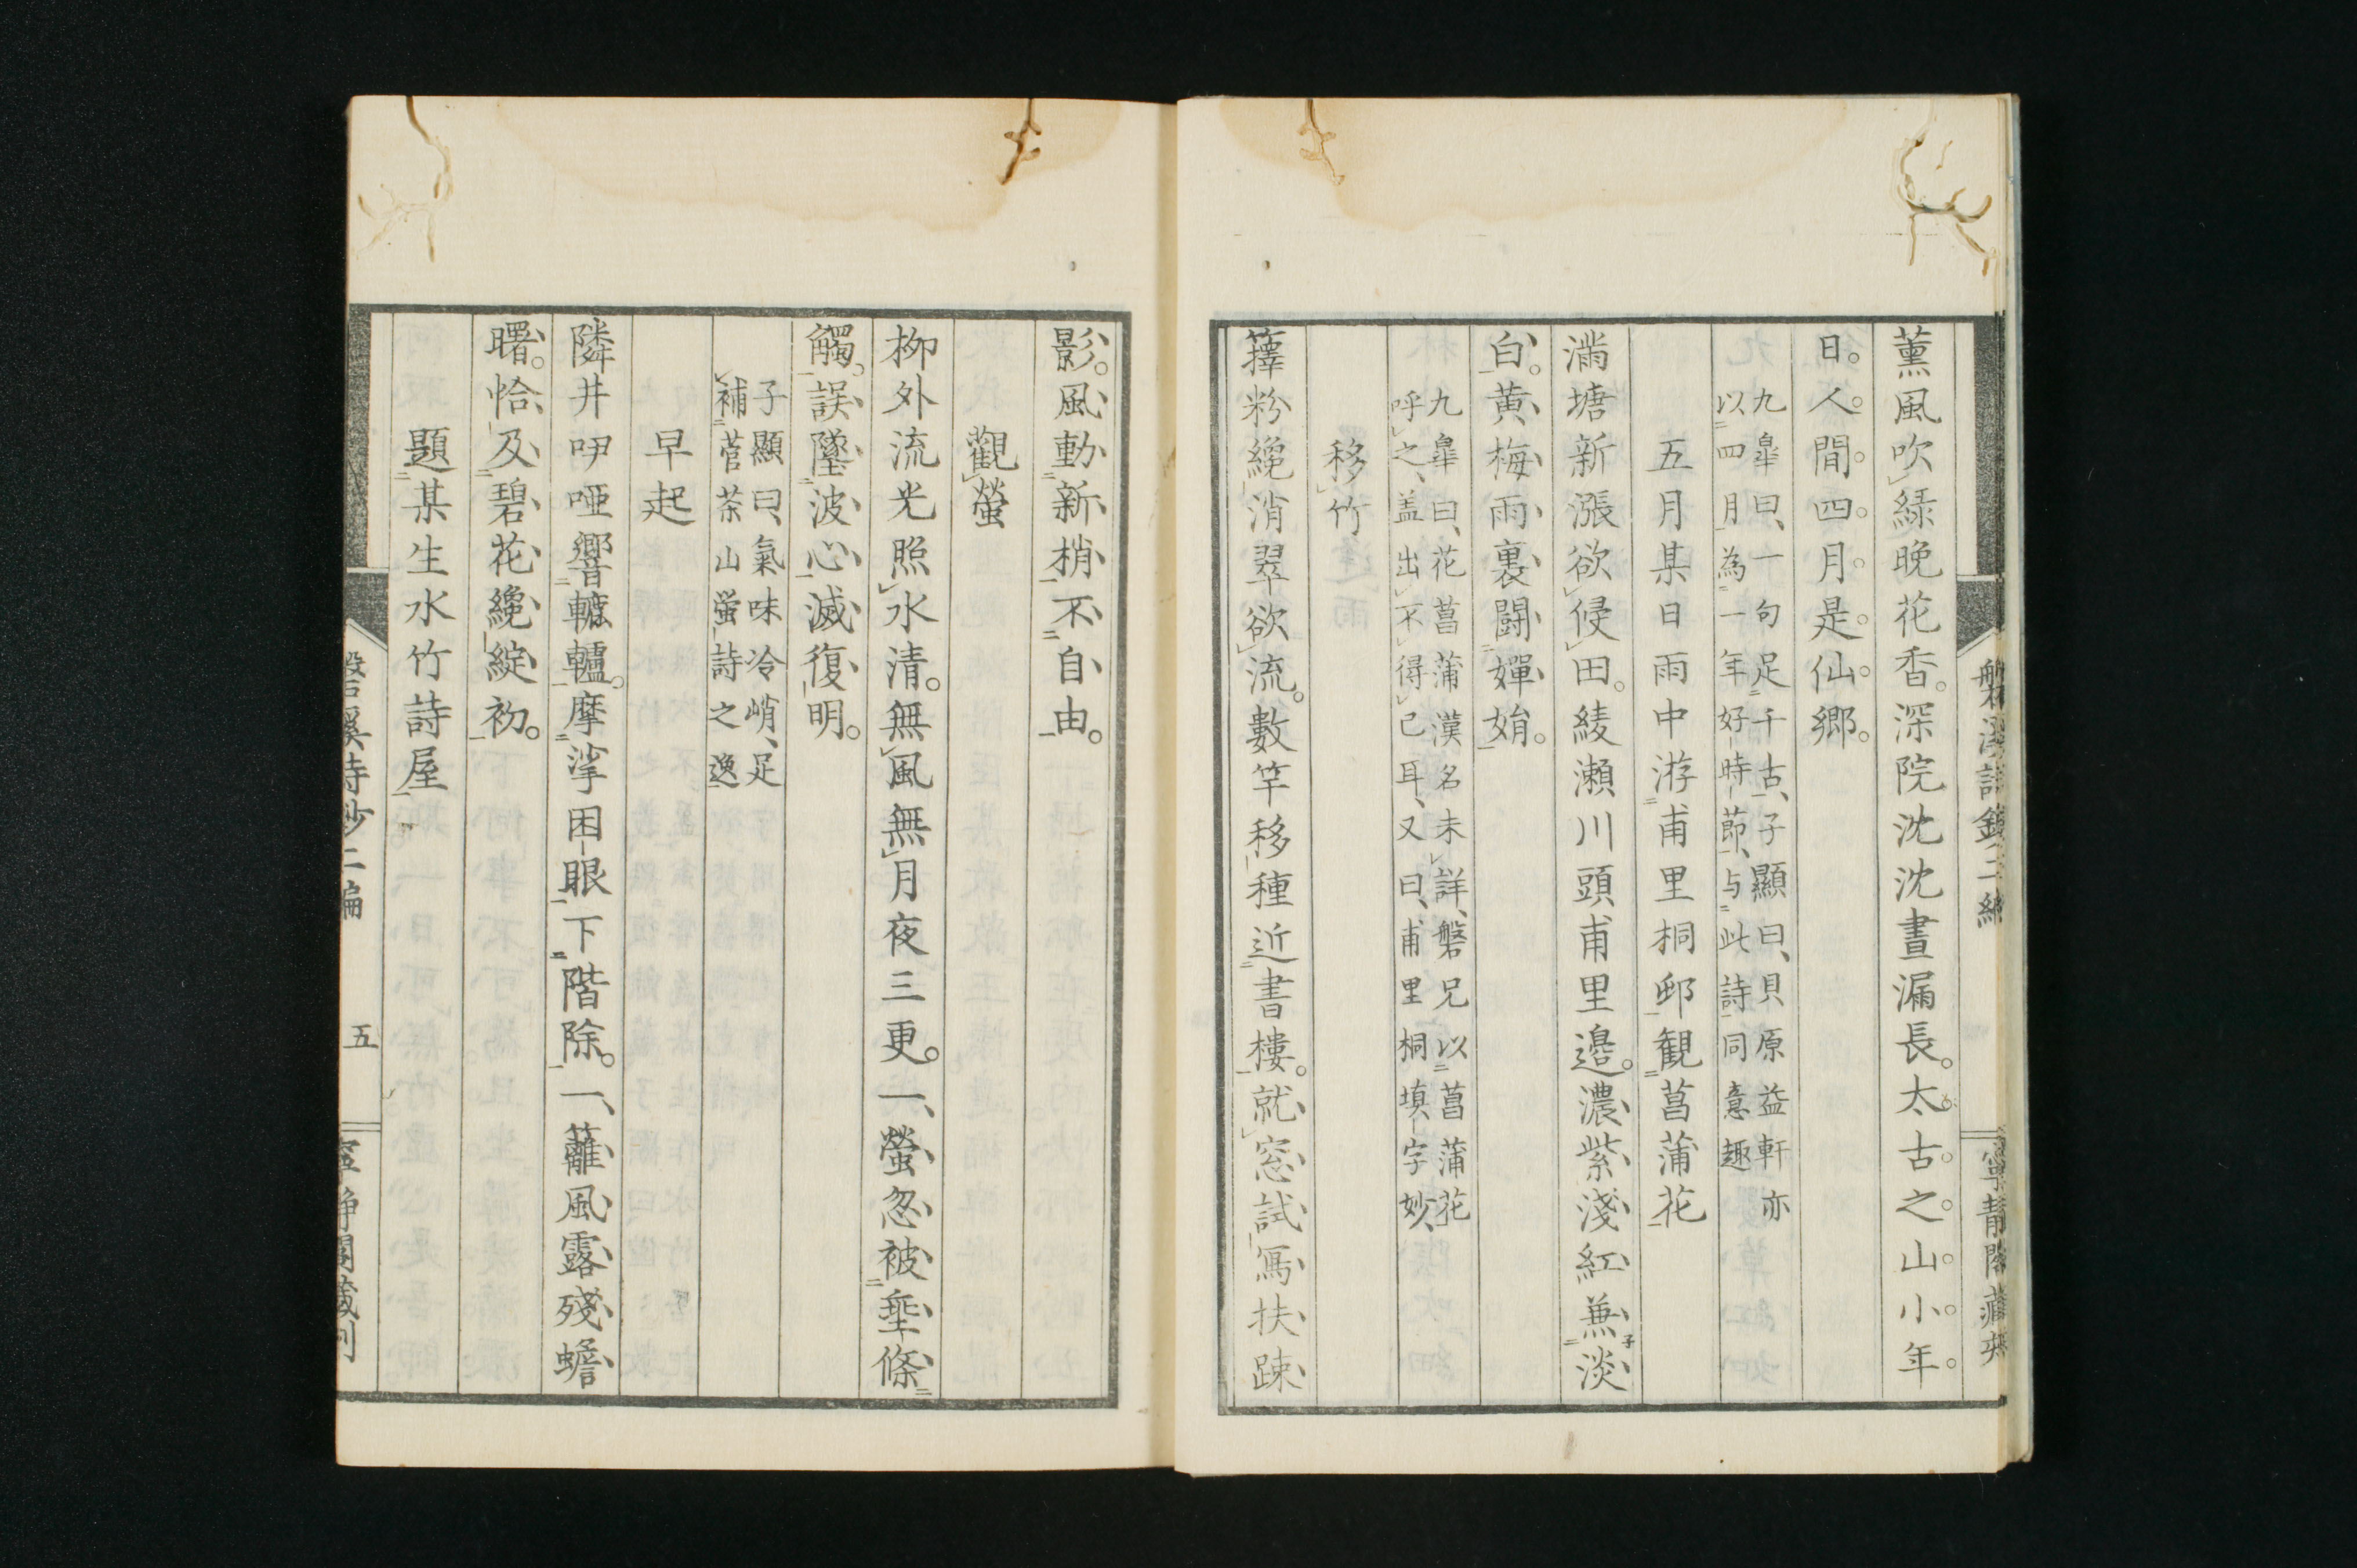 薫風吹緑晩花香。深院沈沈晝漏長。太古之山小年
日。人間四月是仙鄉。
九皐曰、一句足千古、子顯曰、貝原益軒亦
以四月為一年好時節、与此詩同意趣
五月某日雨中游甫里桐邨観菖蒲花
滿塘新漲欲侵田。綾瀨川頭甫里邉。濃紫淺紅兼淡
白。黄梅雨裏鬪嬋娟。
九皐曰、花菖蒲漢名未詳、磐兄以菖蒲花
呼之、盖出不得已耳、又曰、甫里桐填字妙、
移竹
籜粉纔消翠欲流。數竿移種近書樓。就窓試寫扶踈
影。風動新梢不自由。
觀螢
柳外流光照水清。無風無月夜三更。一螢忽被埀條
觸。誤墜波心滅復明。
子顯曰、氣味冷峭、足
補菅茶山螢詩之逸
早起
隣井咿啞響轆轤。摩挲困眼下階除。一籬風露殘蟾
曙。恰及碧花纔綻初。
題某生水竹詩屋
磐溪詩鈔二編
五
寧静閣藏刋